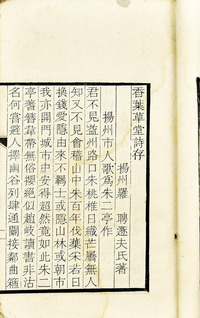 香葉草堂詩存
揚州羅聘遯夫氏著
揚州市人歌爲朱二亭作
君不見益州路口朱桃椎日織芒屩無人
知又不見會稽山中朱百年伐薪采若日
換錢愛隱由來不羈士或隱山林或朝市
我亦開門城市中安得超然寃如此朱二
亭著簪草帶無俗纓絕似趙岐讀書非沽
名何嘗避人擇幽谷列肆通闤接鄰曲箱